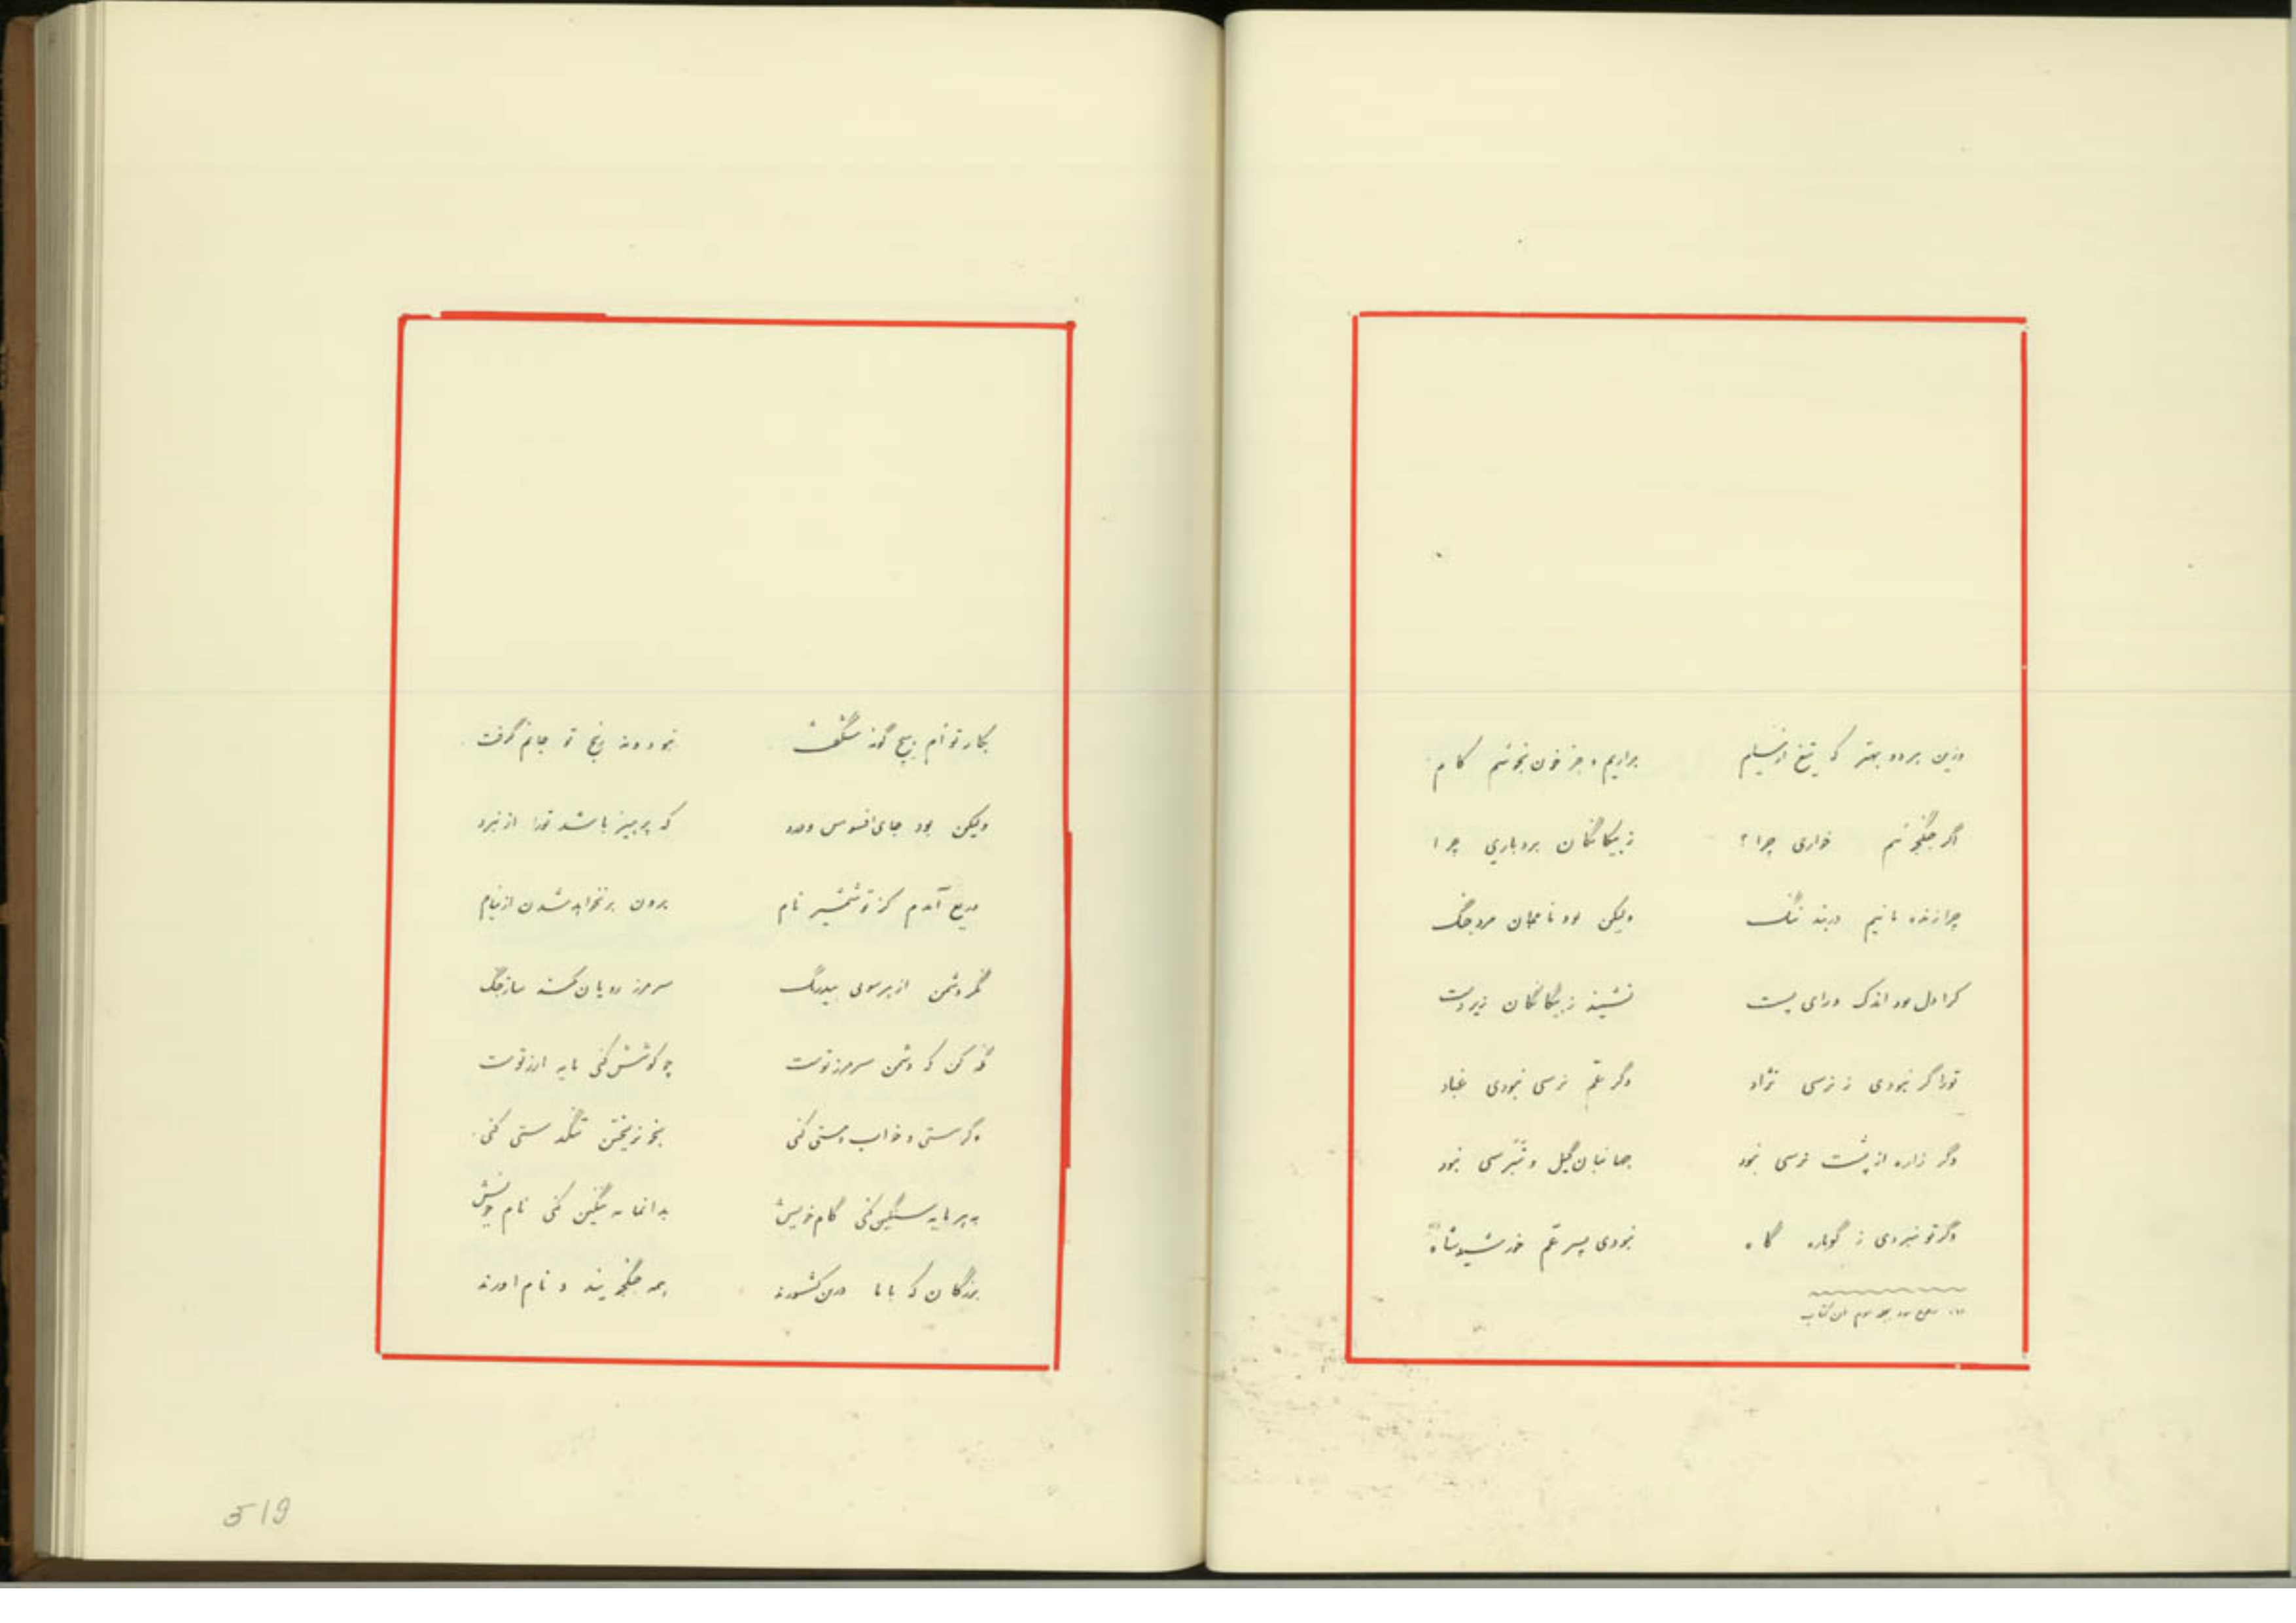 وزین هر دو بهتر که تیغ از نیام برآریم و جز خون نجوئیم کام
اگر جنگجوئیم خواری چرا؟ ز بیگانگان بردباری چرا
چرا زنده مانیم در بند ننگ ولیکن بود نامان مرد جنگ
کرا دل بود اندک و رای پست نشیند ز بیگانگان زیردست
تو را گر نبودی ز نرسی نژاد وگر عم نرسی نبودی غباد
وگر زاره از پشت نرسی نبود جهانبان گیل و نبرسی نبود
وگر تو نبردی ز گوباره گاه نبودی پسر عم خورشید شاه
این کتاب
بکار توأم هیچ گونه شگفت نبود و نه رنج تو جانم گرفت
ولیکن بود جای افسوس و درد که پرهیز باشد تو را از نبرد
دریغ آمدم کز تو شمشیر نام برون بر نخواهد شدن از نیام
مگر دشمن از هر سوی بیدرنگ سر مرز رویان کند ساز جنگ
نگه کن که دشمن سر مرز توست چو کوشش کنی مایه ارز توست
وگر سستی و خواب و مستی کنی بخون ریختن تنگدستی کنی
به پیرایه سنگین کنی گام خویش بدانمایه ننگین کنی نام خویش
بزرگان که با ما درین کشورند همه جنگجویند و نام آورند
519